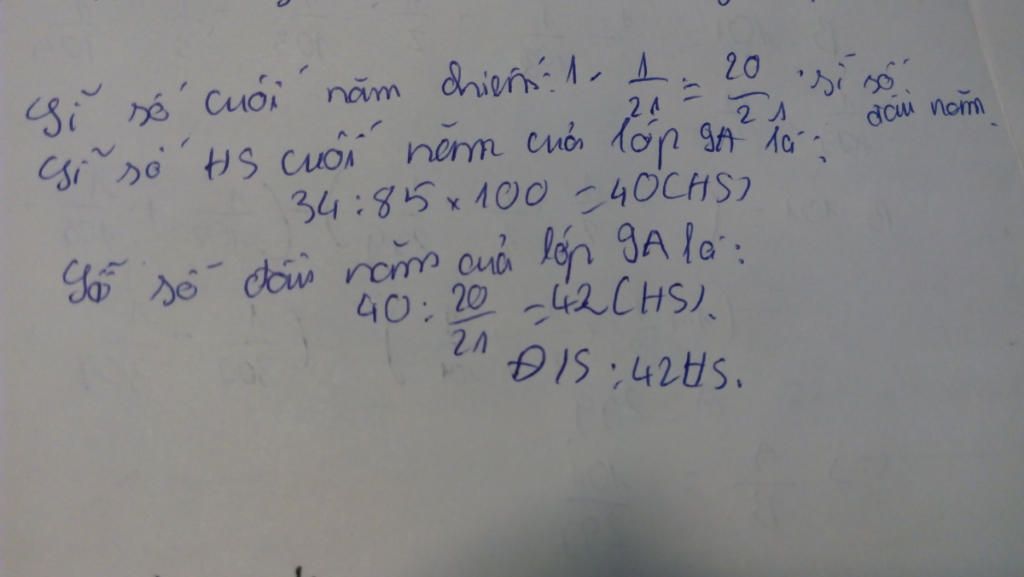 Sĩ số cuối năm chiếm: 1 - 1/21 = 20/21 sĩ số đầu năm.
Sĩ số HS cuối năm của lớp 9A là:
34 : 85 × 100 = 40 (HS)
Số số đầu năm của lớp 9A là:
40 : 20/21 = 42 (HS).
Đ/S : 42 HS.